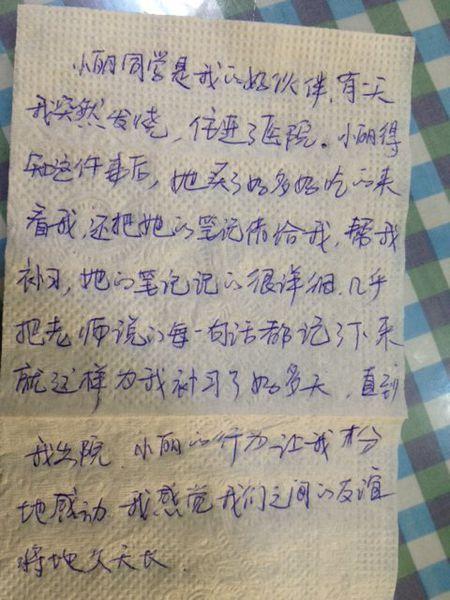 小丽同学是我的好伙伴,有一天
我突然发烧,住进了医院。小丽得
知这件事后,她买了好多好吃的来
看我,还把她的笔记借给我,帮我
补习,她的笔记记的很详细,几乎
把老师说的每一句话都记了下来
就这样为我补习了好多天,直到
我出院,小丽的行为让我
地感动 我感觉我们之间的友谊
将地久天长.